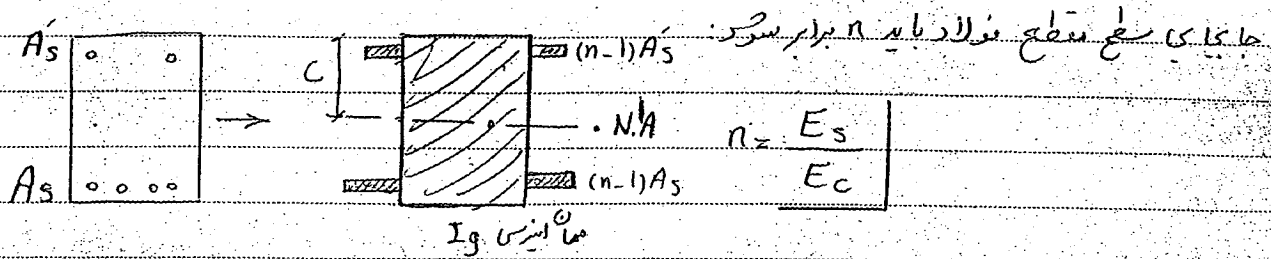 جابجایی سطح مقطع فولاد باید n برابر شود:
A's
C
(n-1)A's
N.A
n = Es / Ec
As
(n-1)As
ممان اینرسی Ig